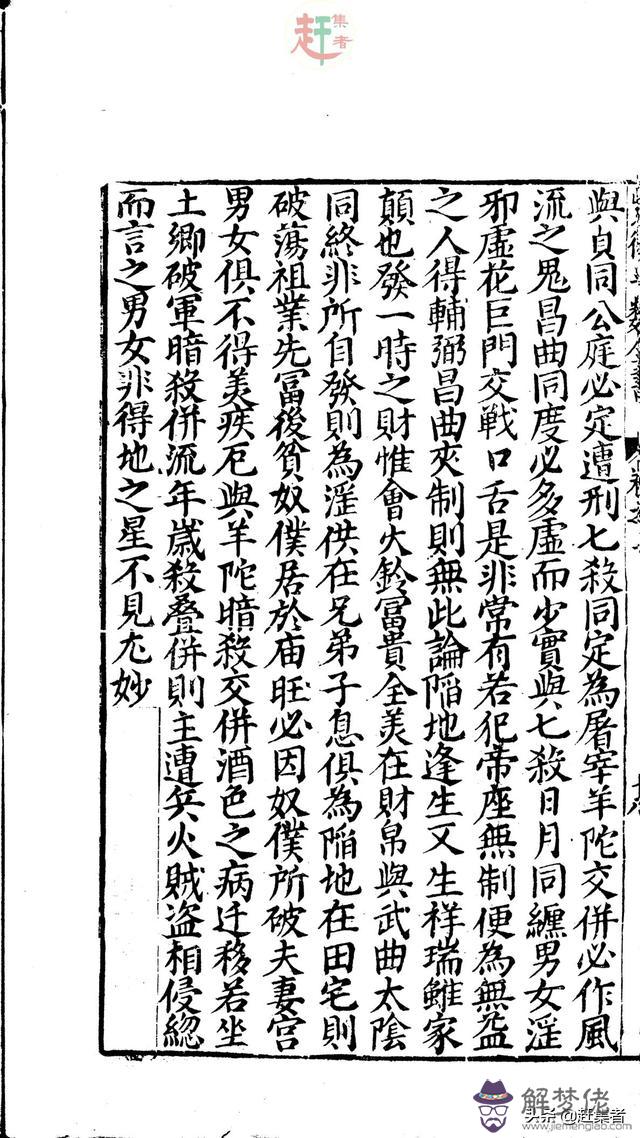 赶集者
與貞同公庭必定遭刑七殺同定為屠宰羊陀交併必作風
流之鬼昌曲同度必多虛而少實與七殺日月同纏男女淫
邪虛花巨門交戰口舌是非常有若犯帝座無制便為無益
之人得輔弼昌曲夾制則無此論陷地逢生又生祥瑞雖家
顛也發一時之財惟會火鈴富貴全美在財帛與武曲太陰
同終非所自發則為淫供在兄弟子息俱為陷地在田宅則
破蕩祖業先富後貧奴僕居於庙旺必因奴僕所破夫妻宮
男女俱不得美疾厄與羊陀暗殺交併酒色之病迁移若坐
土鄉破軍暗殺併流年歲殺叠併則主遭兵火賊盗相侵緫
而言之男女非得地之星不見尤妙
解梦佬
头条@赶集者
www.jiemenglao.com